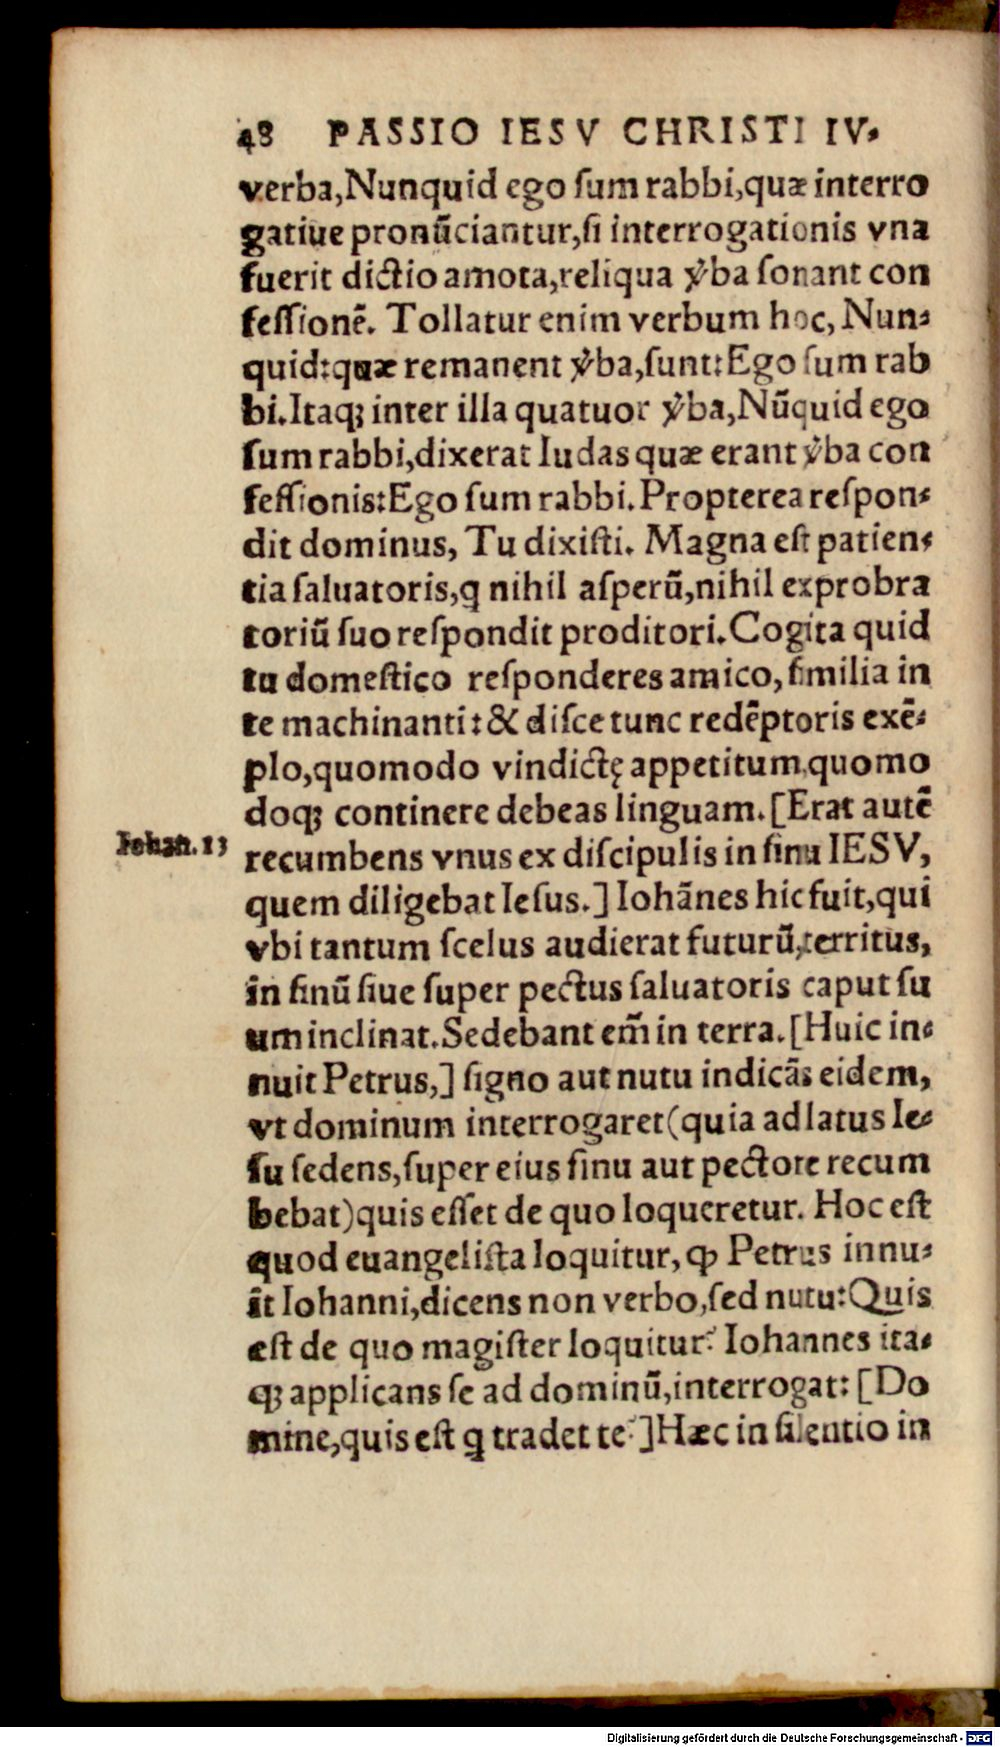 48 PASSIO IESV CHRISTI IV.
verba,Nunquid ego ſum rabbi,quæ interro
gatiue pronũciantur,ſi interrogationis vna
fuerit dictio amota,reliqua v̉ba ſonant con
feſſionẽ. Tollatur enim verbum hoc, Nun⸗
quid:quæ remanent v̉ba,ſunt:Ego ſum rab
bi.Itaq; inter illa quatuor v̉ba,Nũquid ego
ſum rabbi,dixerat Iudas quæ erant v̉ba con
feſſionis:Ego ſum rabbi.Propterea reſpon⸗
dit dominus, Tu dixiſti. Magna eſt patien⸗
tia ſaluatoris,q nihil aſperũ,nihil exprobra
toriũ ſuo reſpondit proditori.Cogita quid
tu domeſtico reſponderes amico, ſimilia in
te machinanti:& diſce tunc redẽptoris exẽ⸗
plo,quomodo vindictę appetitum,quomo
doq; continere debeas linguam.[Erat autẽ
Iohan.13
recumbens vnus ex diſcipulis in ſinu IESV,
quem diligebat Ieſus.]Iohãnes hic fuit,qui
vbi tantum ſcelus audierat futurũ,territus,
in ſinũ ſiue ſuper pectus ſaluatoris caput ſu
um inclinat.Sedebant em̃ in terra.[Huic in⸗
nuit Petrus,] ſigno aut nutu indicãs eidem,
vt dominum interrogaret(quia ad latus Ie⸗
ſu ſedens,ſuper eius ſinu aut pectore recum
bebat)quis eſſet de quo loqueretur. Hoc eſt
quod euangeliſta loquitur, ꝙ Petrus innu⸗
it Iohanni,dicens non verbo,ſed nutu:Quis
eſt de quo magiſter loquitur? Iohannes ita⸗
q; applicans ſe ad dominũ,interrogat: [Do
mine,quis eſt q tradet te?]Hæc in ſilentio in
Digitalisierung gefördert durch die Deutsche Forschungsgemeinschaft - DFG